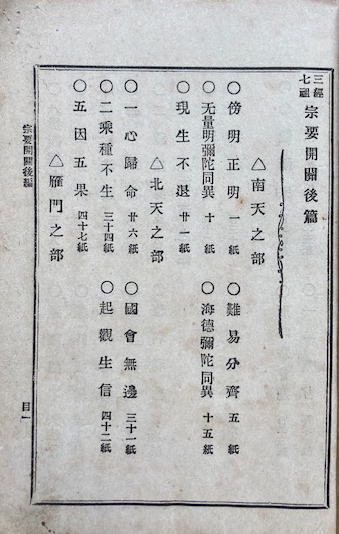 三經七祖 宗要開關後篇
△南天之部
○傍明正明 一紙 ○難易分齊 五紙
○无量明彌陀同異 十紙 ○海德彌陀同異 十五紙
○現生不退 廿一紙
△北天之部
○一心歸命 廿六紙 ○國會無邊 三十一紙
○二乘種不生 三十四紙 ○起觀生信 四十二紙
○五因五果 四十七紙
△雁門之部
宗要開關後編
目一